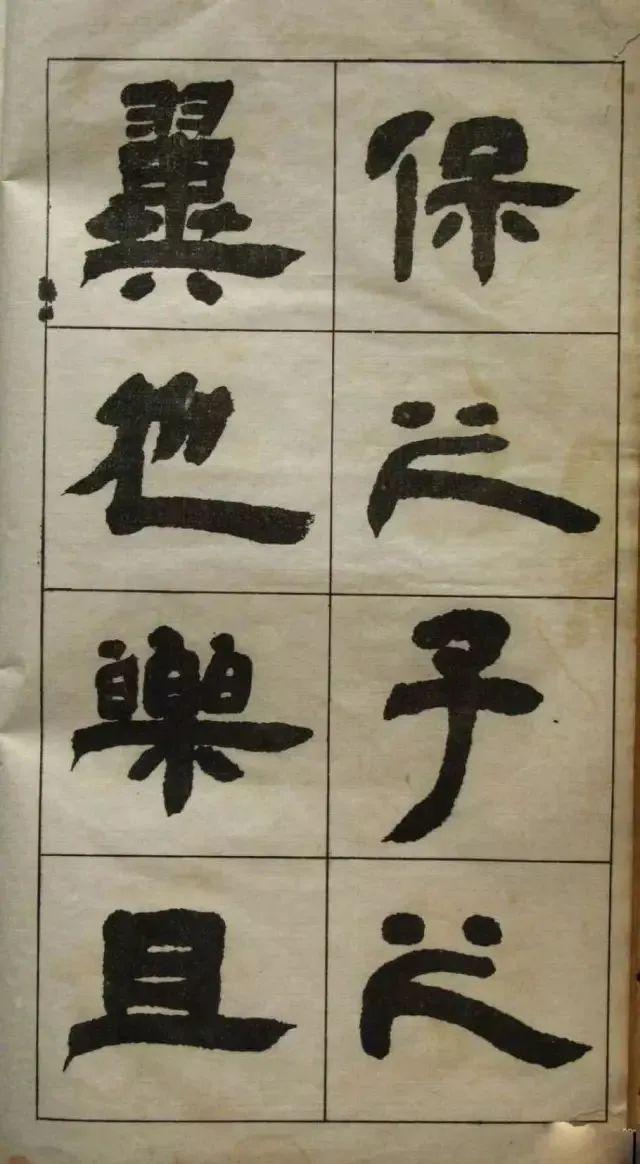 保之子之
翼也樂且